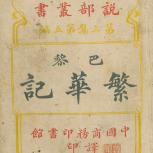 説部叢書
第三集第五編
巴黎
繁華記
中國商務印書館
譯印